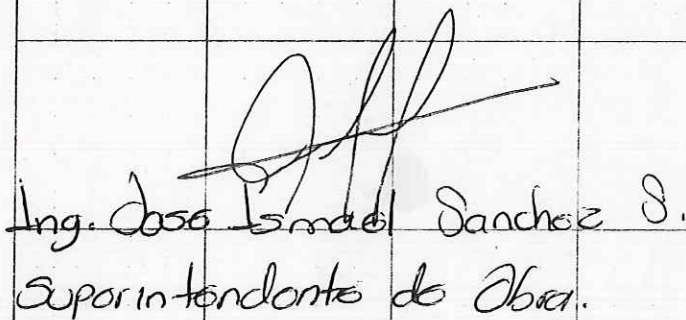 Ing. Jose Ismael Sanchez S.
Superintendente de Obra.